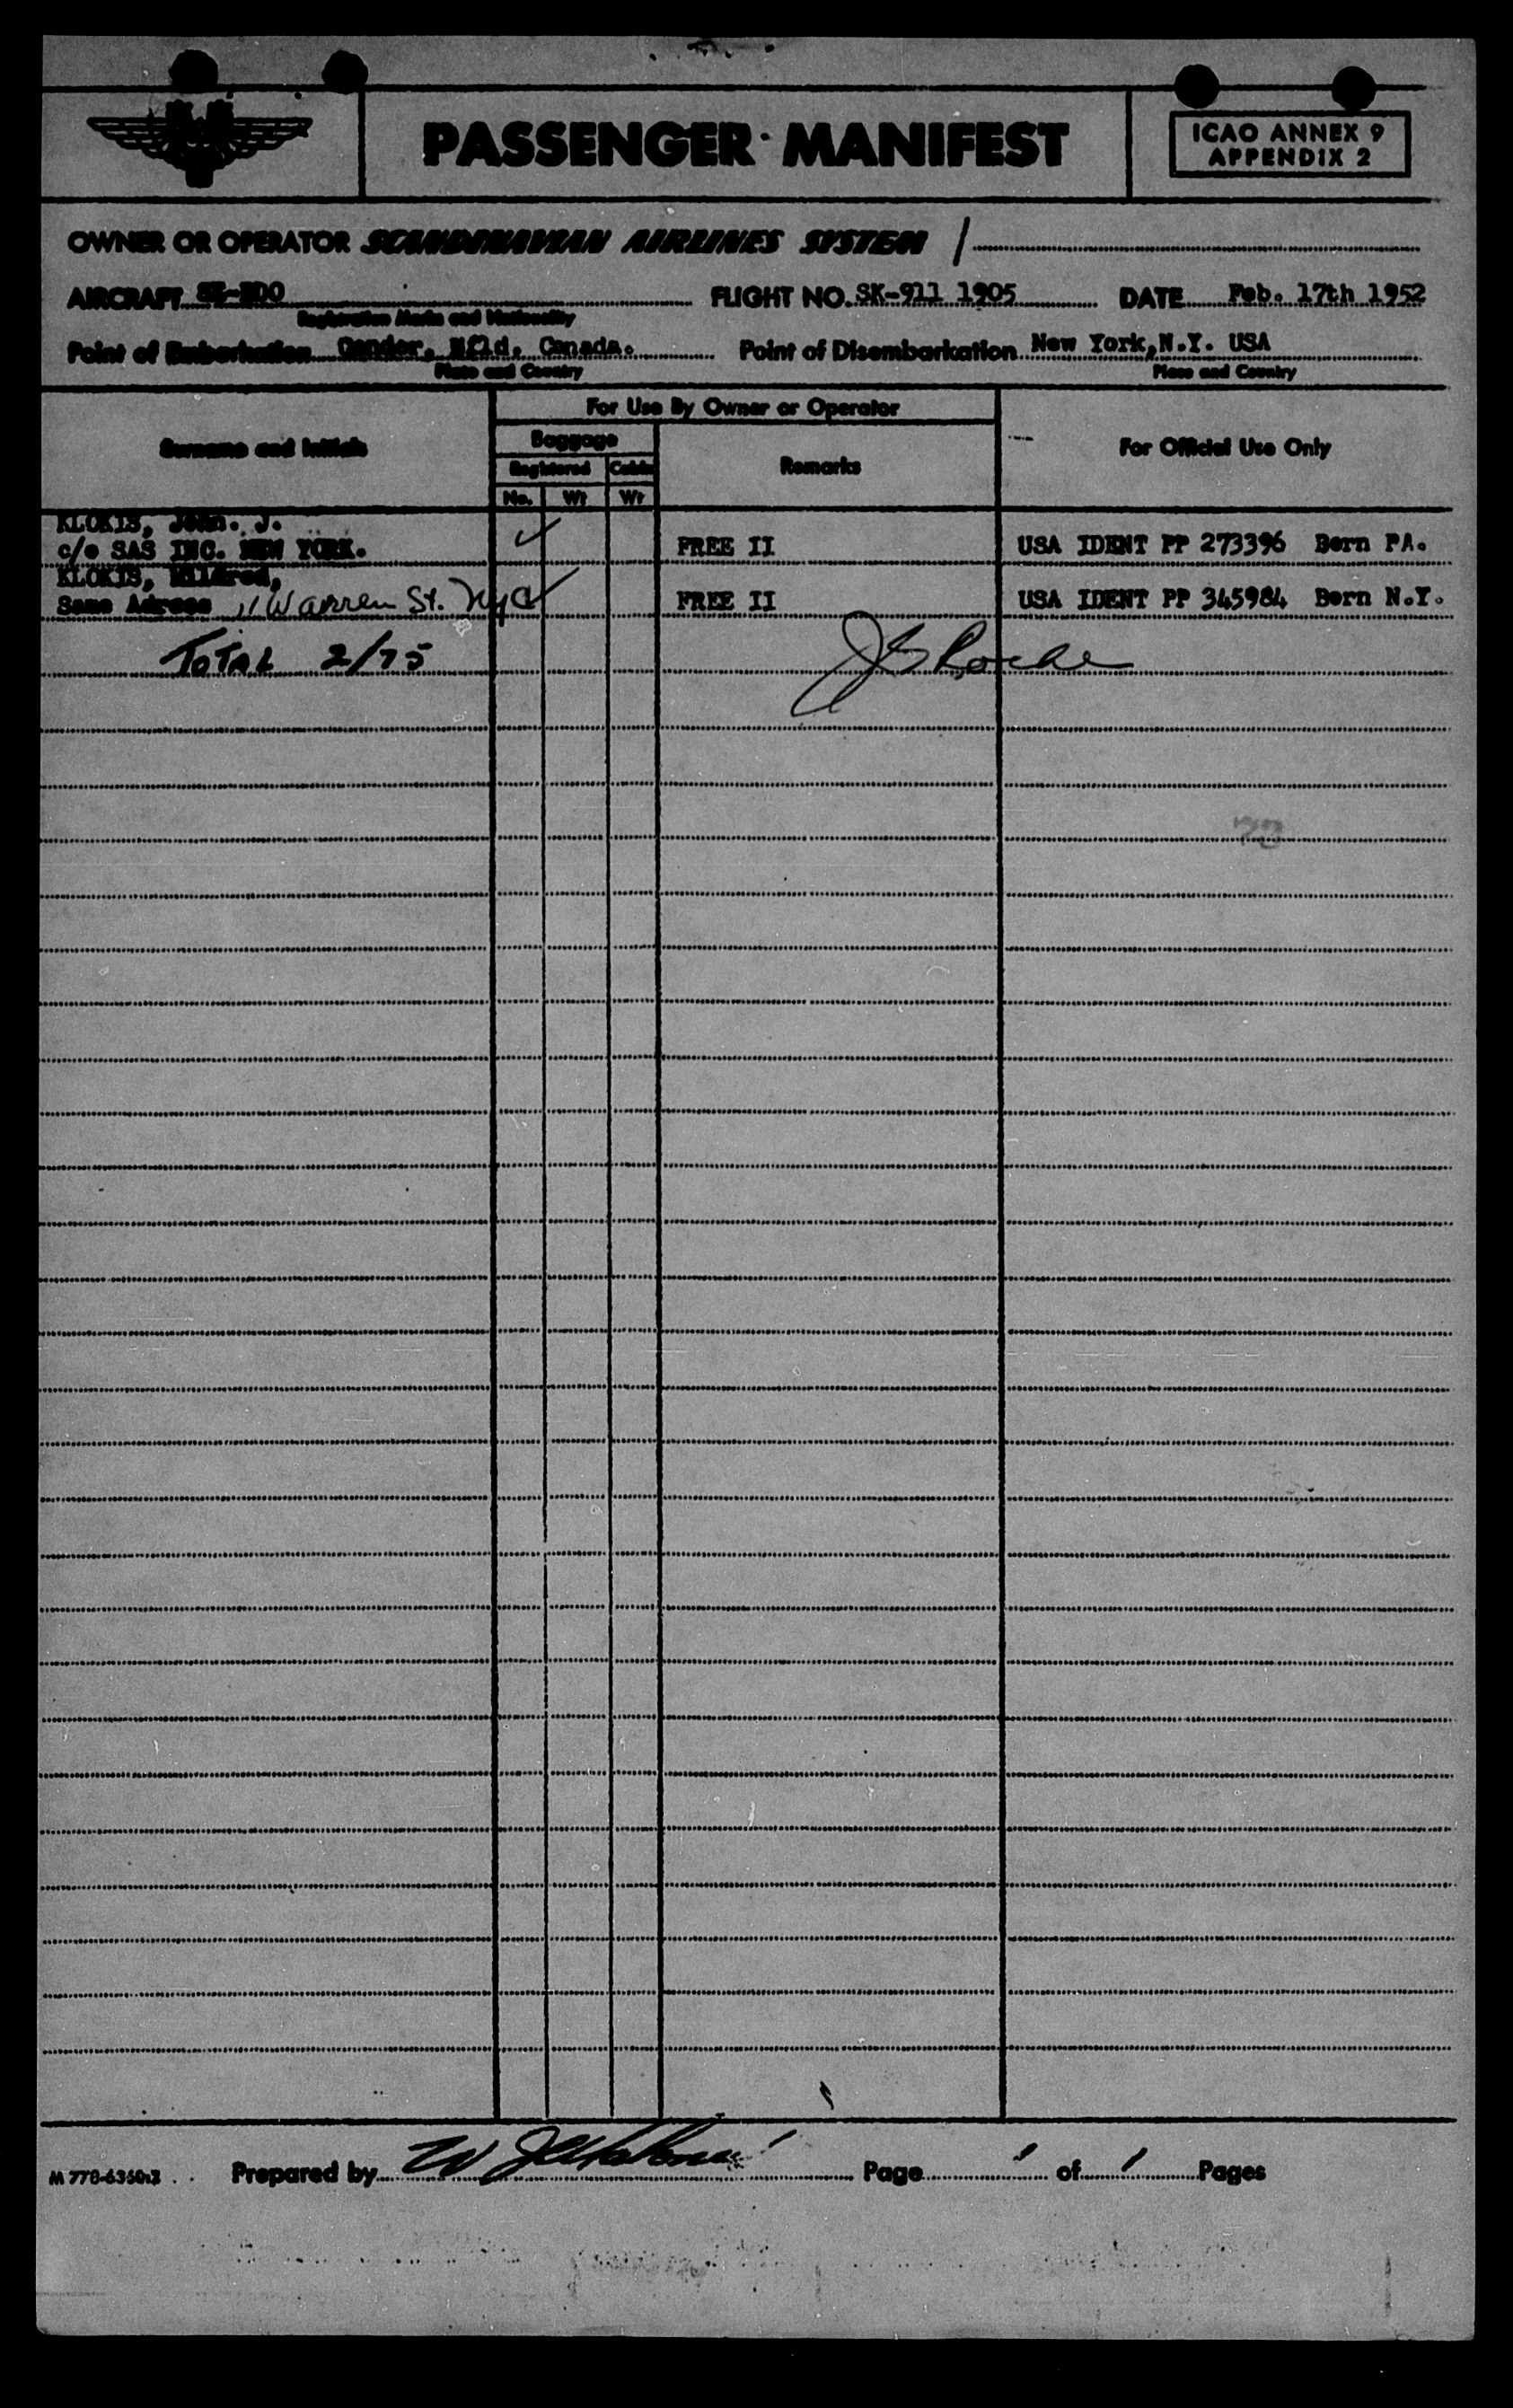 PASSENGER MANIFEST
ICAO ANNEX 9
APPENDIX 2
OWNER OR OPERATOR SCANDINAVIAN AIRLINES SYSTEM /
AIRCRAFT FLIGHT NO. SK-911 1905 DATE Feb. 17th 1952
Registration Marks and Nationality
Point of Embarkation Gander, Nfld, Canada. Point of Disembarkation New York,N.Y. USA
Place and Country Place and Country
For Use By Owner or Operator
Surname and Initials Baggage Remarks For Official Use Only
Registered Cabin
No. Wt Wt
KLOKIS, John. J.
c/o SAS INC. NEW YORK. FREE II USA IDENT PP 273396 Born PA.
KLOKIS, Mildred,
Same Adress 11 Warren St. NYC FREE II USA IDENT PP 345984 Born N.Y.
TOTAL 2/75 Roche
M 778-6350:3 Prepared by Page 1 of 1 Pages